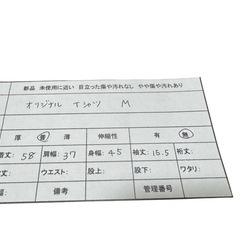 新品 未使用に近い 目立った傷や汚れなし やや傷や汚れあり
オリジナル Tシャツ M
厚 普 薄 伸縮性 有 無
着丈: 58 肩幅: 37 身幅: 45 袖丈: 16.5 裄丈:
丈: ウエスト: 股上: 股下: ワタリ:
備考 管理番号